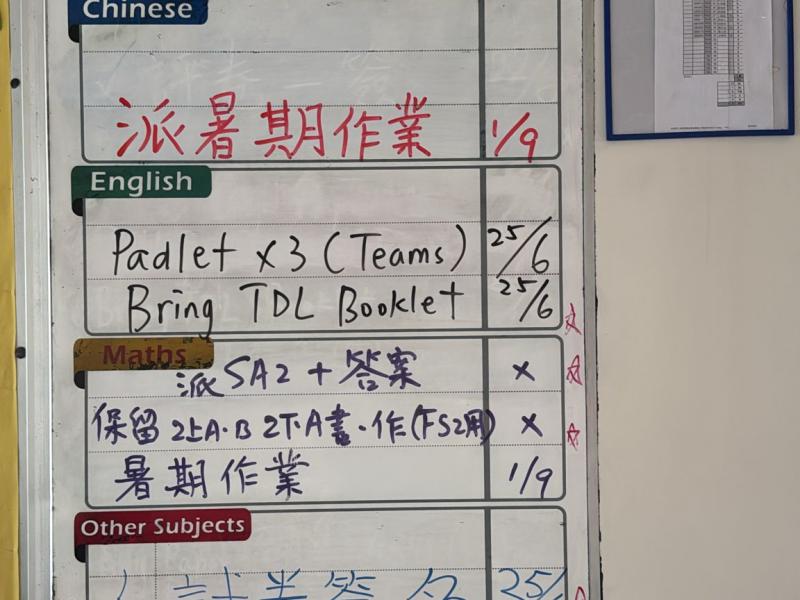 Chinese
派暑期作業 1/9
English
Padlet x 3 (Teams) 25/6
Bring TDL Booklet 25/6
Maths
派 SA2 + 答案 x
保留 2上A·B 2下·A書·作(下S2用) x
暑期作業 1/9
Other Subjects
25/